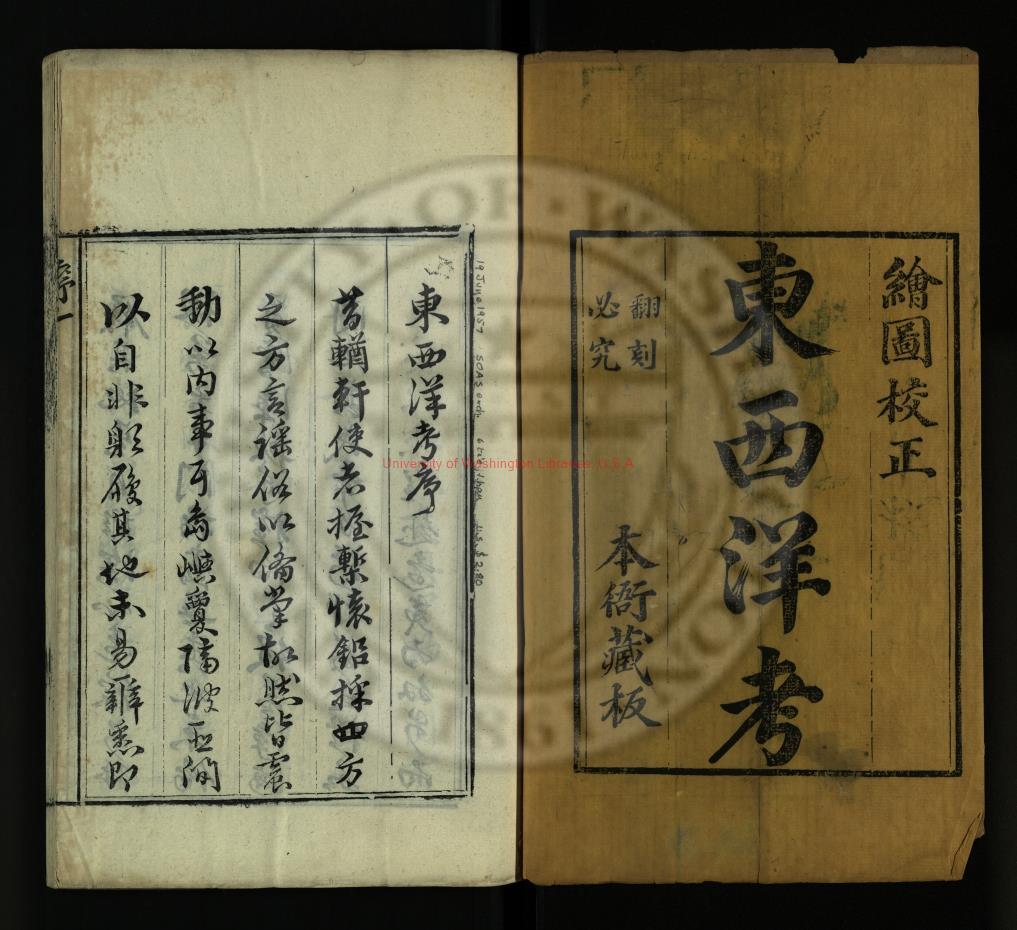 繪圖校正
東西洋考
翻刻
必究
本衙藏板
東西洋考序
昔輶軒使者握槧懷鉛採四方
之方言謡俗以俻掌故然皆震
以内事耳島嶼夐隔波臣間
以自非躬履其地未易辯悉即
序一
19 June 1957 SOAS exch. U.S. $2.80
University of Washington Libraries, U.S.A.